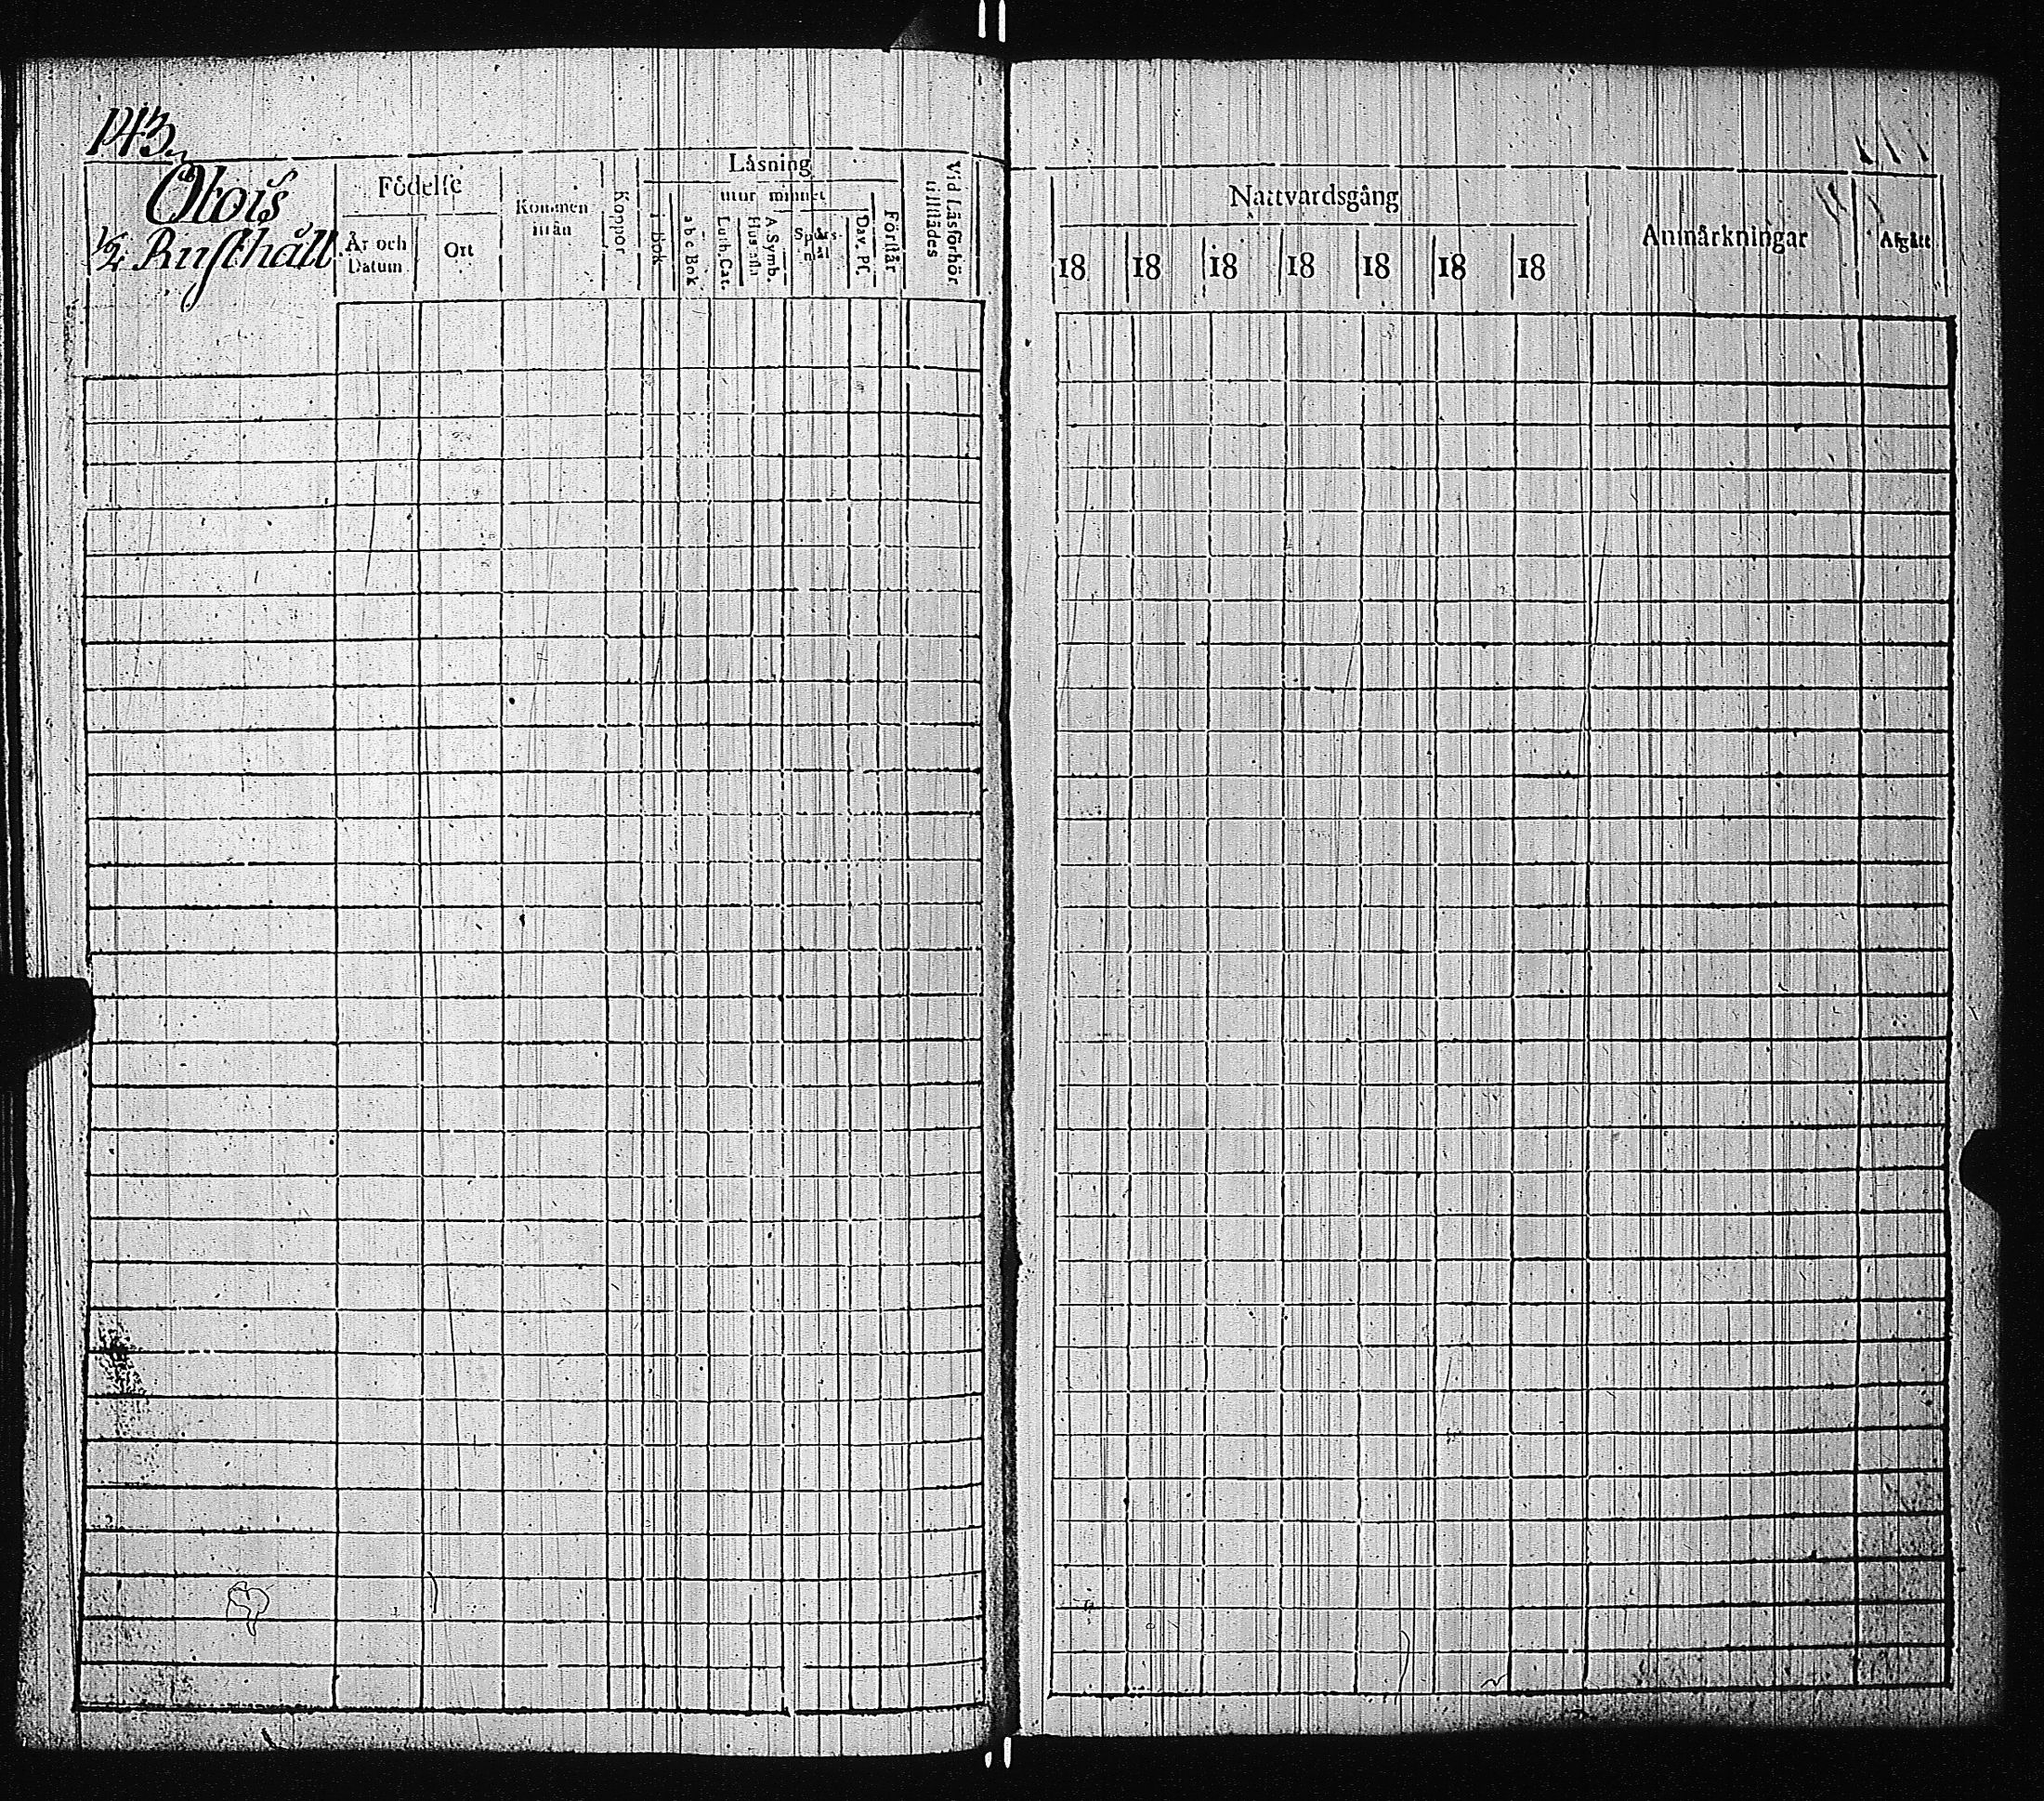 143.
Otois
½ Rusthåll
Födelse
År och Datum
Ort
Kommen ifrån
Koppor
Läsning
i Bok
utur minnet
a b c Bok
Luth. Cat.
Hustafla
A. Symb.
Spörsmål
Dav. Ps.
Förstår
Vid Läsförhör tillstädes
Nattvardsgång
18 18 18 18 18 18 18
Anmärkningar
Afgått